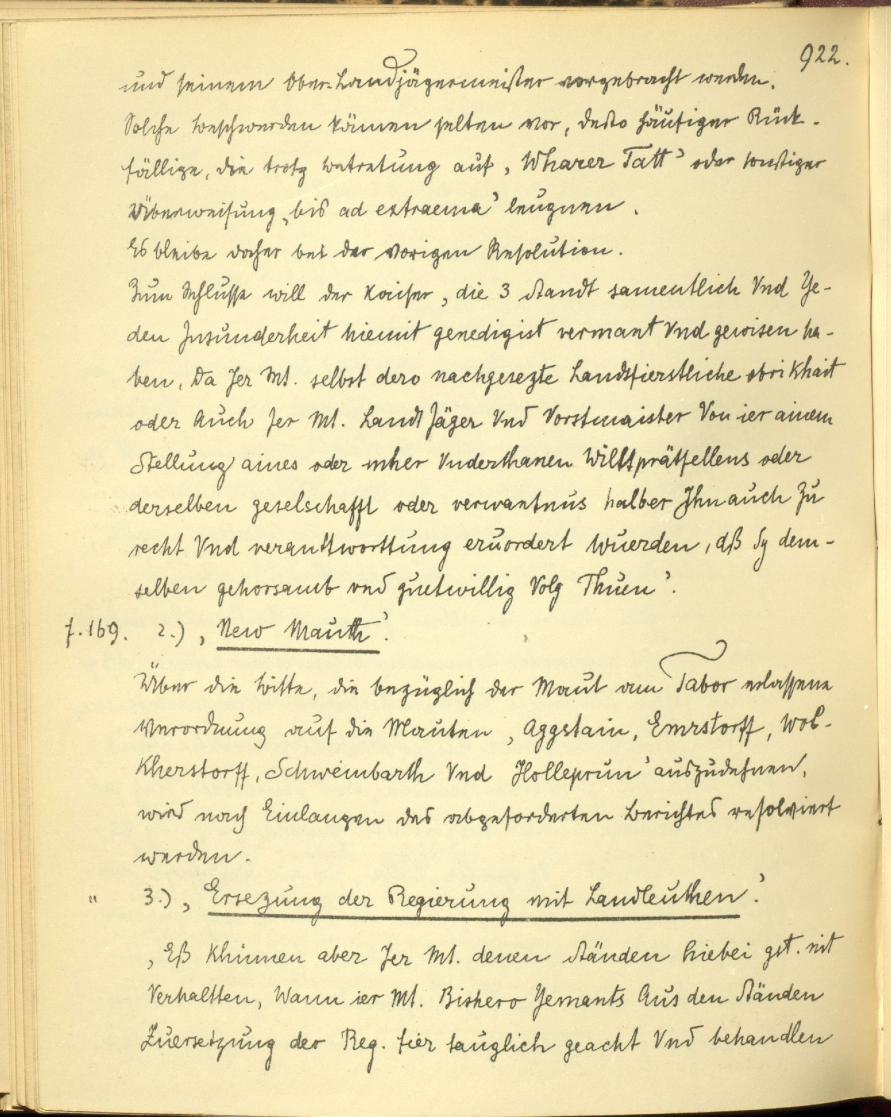 922.
und seinem Ober-Landjägermeister vorgebracht werden.
Solche Beschwerden kämen selten vor, desto häufiger Rück-
fällige, die trotz Betretung auf ‚Wharer Tatt' oder sonstiger
Überweisung ‚bis ad extraema' leugnen.
Es bleibe daher bei der vorigen Resolution.
Zum Schlusse will der Kaiser ‚die 3 Standt samentlich Vnd Ye-
den Insunderheit hiemit genedigist vermant Vnd gewisen ha-
ben, Da Jer Mt. selbst dero nachgesezte Landtsfierstliche obrikhait
oder Auch Jer Mt. Landt Jäger Vnd Vorstmaister Von ier ainem
Stellung aines oder mher Vnderthanen Wilttprätfellens oder
derselben geselschafft oder verwantnus halber Ihn auch Zu
recht Vnd verandtworttung eruordert wuerden, dß Sy dem-
selben gehorsamb vnd guetwillig Volg Thuen'.
f. 169. 2.) ‚New Mauth'.
Über die Bitte, die bezüglich der Maut am Tabor erlassene
Verordnung auf die Mauten ‚Aggstain, Emrstorff, Wol-
Kherstorff, Schweinbarth Vnd Holleprun' auszudehnen,
wird nach Einlangen des abgeforderten Berichtes resolviert
werden.
" 3.) ‚Ersezung der Regierung mit Landleuthen'.
‚Eß Khinnen aber Jer Mt. denen Ständen hiebei gst. nit
Verhaltten, Wann ier Mt. Bishero Yemants Aus den Ständen
Zuersetzung der Reg. fier tauglich geacht Vnd behandlen